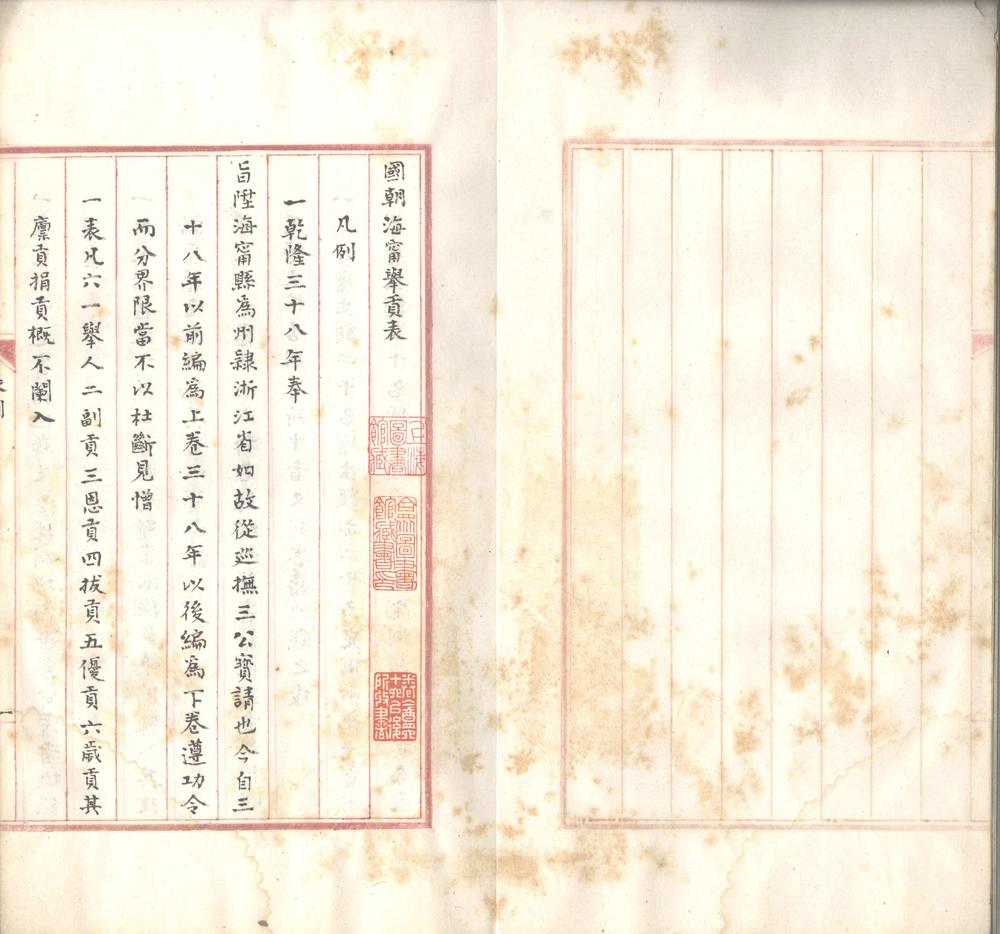 國朝海甯舉貢表
凡例
一乾隆三十八年奉
旨陞海甯縣為州隷浙江省如故從巡撫三公寳請也今自三
十八年以前編為上卷三十八年以後編為下卷遵功令
而分界限當不以杜斷見憎
一表凡六一舉人二副貢三恩貢四拔貢五優貢六歲貢其
廪貢捐貢概不闌入
上海圖書館藏
合眾圖書館藏書印